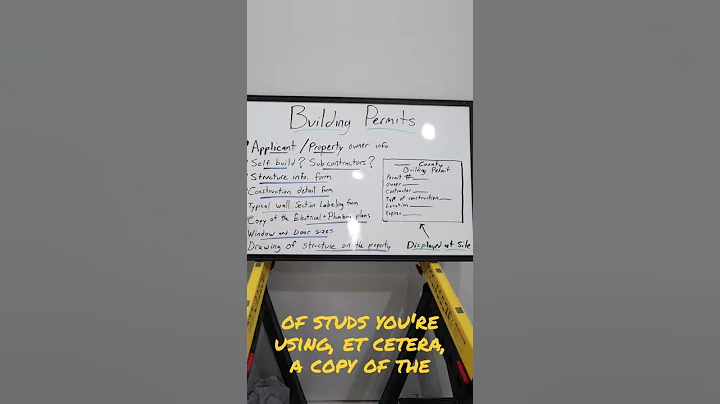 Building Permits
Applicant / Property owner info.
Self build? Subcontractors?
Structure info. form
Construction detail form
Typical Wall Section Labeling form
Copy of the Electrical + Plumbing plans
Window and Door sizes
Drawing of structure on the property
___ County
Building Permit
Permit # ___
Owner ___
Contractor ___
Type of construction ___
Location ___
Expires ___
Displayed at Site
OF STUDS YOU'RE
USING, ET CETERA,
A COPY OF THE